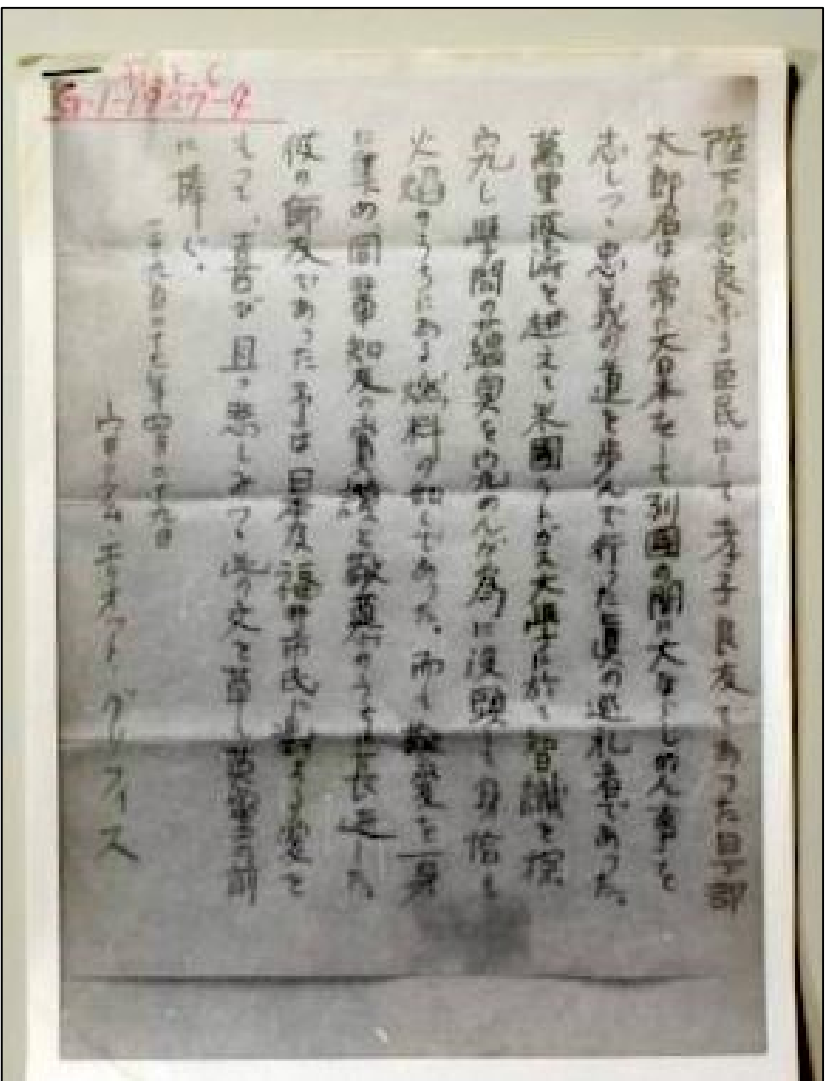 G-1-1927-9
陛下の忠良なる臣民にして孝子良友であつた日下部
太郎君は常に大日本をして列國の間に大ならしめん事を
志しつゝ忠義の道を歩んで行つた真の巡礼者であつた。
萬里波濤を越えて米國ラトガス大學に於て智識を探
究し學問の蘊奥を究めんが為に没頭し身恰も
火焰のうちにある燃料の如くであつた。而も敬愛を一身
に集め同輩知友の賞讃と敬慕のうちに長逝した。
彼の師友であつた予は日本及福井市民に対する愛を
もつて、喜び且つ悲しみつゝ此の文を草し英霊の前
に捧ぐ。
一千九百二十七年四月二十九日
ウヰリアム・エリオット・グリフィス